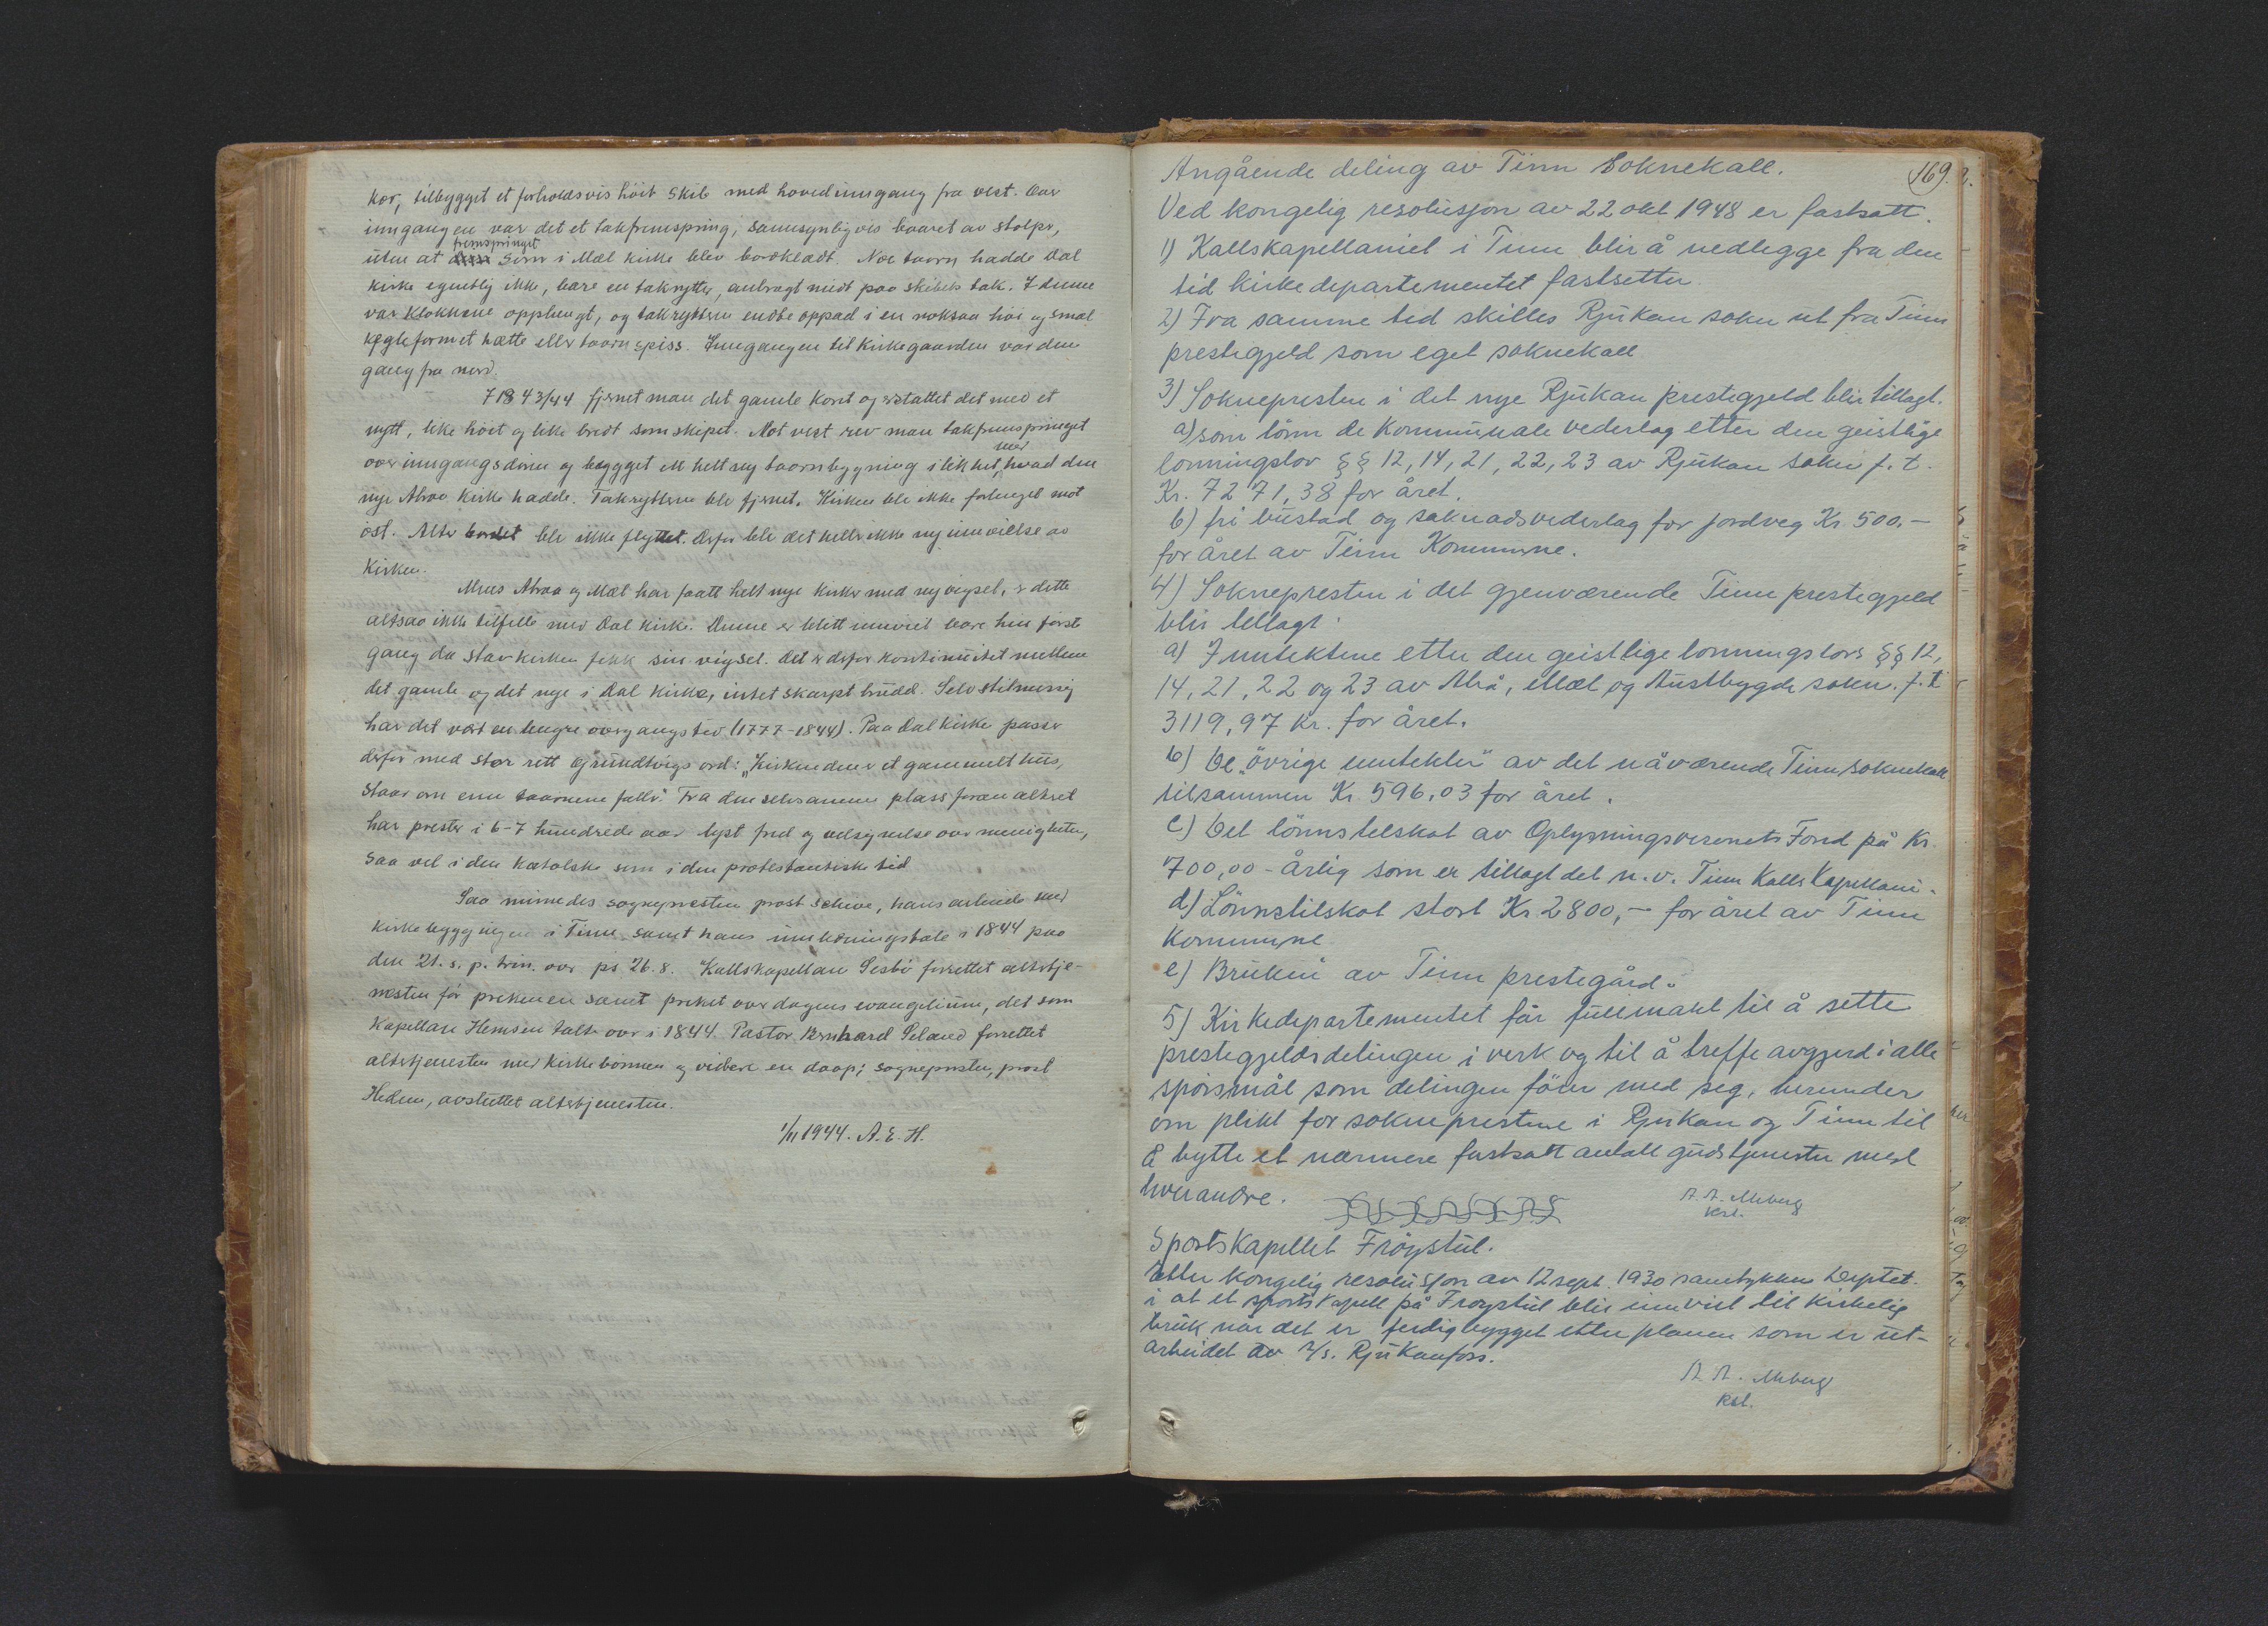 kor, tilbygget et forholdsvis höit skib med hovedinngang fra vest. Over
inngangen var det et takfremspring, sannsynligvis baaret av stolpr,
uten at fremspringet som i Mæl kirke blev bordklædt. Noe taarn hadde Dal
kirke egentlig ikke, bare en takrytter, anbragt midt paa skibets tak. I denne
var klokkene opphengt, og takrytteren endte oppad i en noksaa höi og smal
kegleformet hætte eller taarnspiss. Inngangen til kirkegaarden var den
gang fra nord.
I 1843/44 fjernet man det gamle koret og erstattet det med et
nytt, like höit og like bredt som skipet. Mot vest rev man takfremspringet
over inngangsdören og bygget et helt ny taarnbygning i likhet med hvad den
nye Atraa kirke hadde. Takrytteren ble fjernet. Kirken ble ikke forlenget mot
öst. Alterbordet ble ikke flyttet. Derfor ble det heller ikke ny innvielse av
kirken.
Mens Atraa og Mæl har faatt helt nye kirker med ny vigsel, er dette
altsaa ikke tilfelle med Dal kirke. Denne er blitt innviet bare hin förste
gang da stavkirken fikk sin vigsel. Det er derfor kontinuitet mellem
det gamle og det nye i Dal kirke, intet skarpt brudd. Selv stilmessig
har det vært en lengre overgangstid (1777-1844). Paa Dal kirke passer
derfor med stor rett Grundtvigs ord: "Kirken den er et gammelt hus,
staar om enn taarnene falle." Fra den selvsamme plass foran alteret
har prester i 6-7 hundrede aar lyst fred og velsignelse over menigheten,
saa vel i den katolske som i den protestantiske tid
Saa mintes sogneprsten prost Schive, hans arbeide med
kirkebyggingen i Tinn samt hans innledningstale i 1844 paa
den 21. s. p. trin. over ps 26.8. Kallskapellan Sesbö forrettet altertje-
nesten för prekenen samt preket over dagens evangelium, det som
Kapellan Hemsen talte over i 1844. Pastor Bernhard Seland forrettet
altertjenesten med kirkebönnen og videre en daap; sognepresten, prost
Hedem, avsluttet altertjenesten.
1/11 1944. A. E. H.
169.
Angående deling av Tinn Soknekall.
Ved kongelig resolusjon av 22 okt 1948 er fastsatt.
1) Kallskapellaniet i Tinn blir å nedlegge fra den
tid kirkedepartementet fastsetter.
2) Fra samme tid skilles Rjukan sokn ut fra Tinn
prestegjeld som eget soknekall
3) Soknepresten i det nye Rjukan prestegjeld blir tillagt.
a) som lönn de kommunale vederlag etter den geistlige
lönningslov §§ 12, 14, 21, 22, 23 av Rjukan sokn f. t.
Kr. 7271,38 for året.
b) fri bustad og saknadsvederlag for jordveg Kr 500.-
for året av Tinn Kommune.
4) Soknepresten i det gjenværende Tinn prestegjeld
blir tillagt:
a) Inntektene etter den geistlige lönningslovs §§ 12,
14, 21, 22 og 23 av Atrå, Mæl og Austbygde sokn. f. t
3119,97 kr. for året.
b) De "övrige inntekter" av det nåværende Tinn soknekall
tilsammen Kr. 596,03 for året.
c) Det lönnstilskot av Oplysningsvesenets Fond på Kr.
700,00 - årlig som er tillagt det n.v. Tinn Kallskapellani.
d) Lönnstilskot stort Kr 2800,- for året av Tinn
Kommune
e) Bruken av Tinn prestegård.
5) Kirkedepartementet får fullmakt til å sette
prestegjeldsdelingen i verk og til å treffe avgjerd i alle
spörsmål som delingen förer med seg, herunder
om plikt for sokneprestene i Rjukan og Tinn til
å bytte et nærmere fastsatt antall gudstjenester med
hverandre.
Sportskapellet Fröystul.
Etter kongelig resolusjon av 12 sept. 1930 samtykker Deptet.
i at et sportskapell på Fröystul blir innviet til kirkelig
bruk når det er ferdig bygget etter planen som er ut-
arbeidet av A/s. Rjukanfoss.